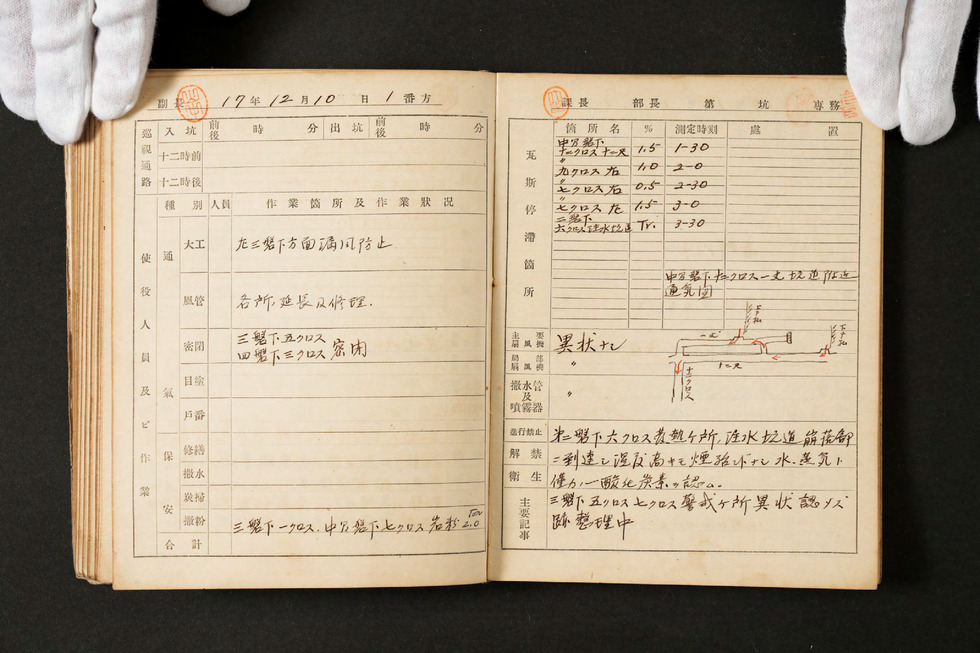 副長 17年 12月 10日 1番方
巡視通路 入坑 前後 時 分 出坑 前後 時 分
十二時前
十二時後
使役人員及ビ作業
種別 人員 作業箇所及作業狀況
通氣
大工 左三盤下方面漏風防止
風管 各所、延長及修理.
密閉 三盤下五クロス
四盤下三クロス 密閉
目塗
戸番
保安
修繕
撒水
炭掃
撒粉 三盤下一クロス、中部盤下七クロス岩粉 2.0 Ton
合計
課長 部長 第 坑 専務
瓦斯停滯箇所
箇所名 % 測定時刻 處置
十一クロス十二尺 1.5 1-30
〃 九クロス右 1.0 2-0
〃 七クロス右 0.5 2-30
〃 七クロス左 1.5 3-0
二盤下
六クロス注水坑道 Tr. 3-30
通気図
主要扇風機 異狀ナシ
局部扇風機 〃
撒水管及噴霧器 〃
一丈
十二尺
十一クロス
進行禁止 第二盤下六クロス發熱ヶ所、注水坑道崩落部
解禁 ニ到達シ湿度高キモ煙殆ンドナシ 水、蒸気ト
衛生 僅カノ一酸化炭素ヲ認ム.
主要記事 三盤下五クロス七クロス警戒ヶ所異狀認メズ
跡整理中